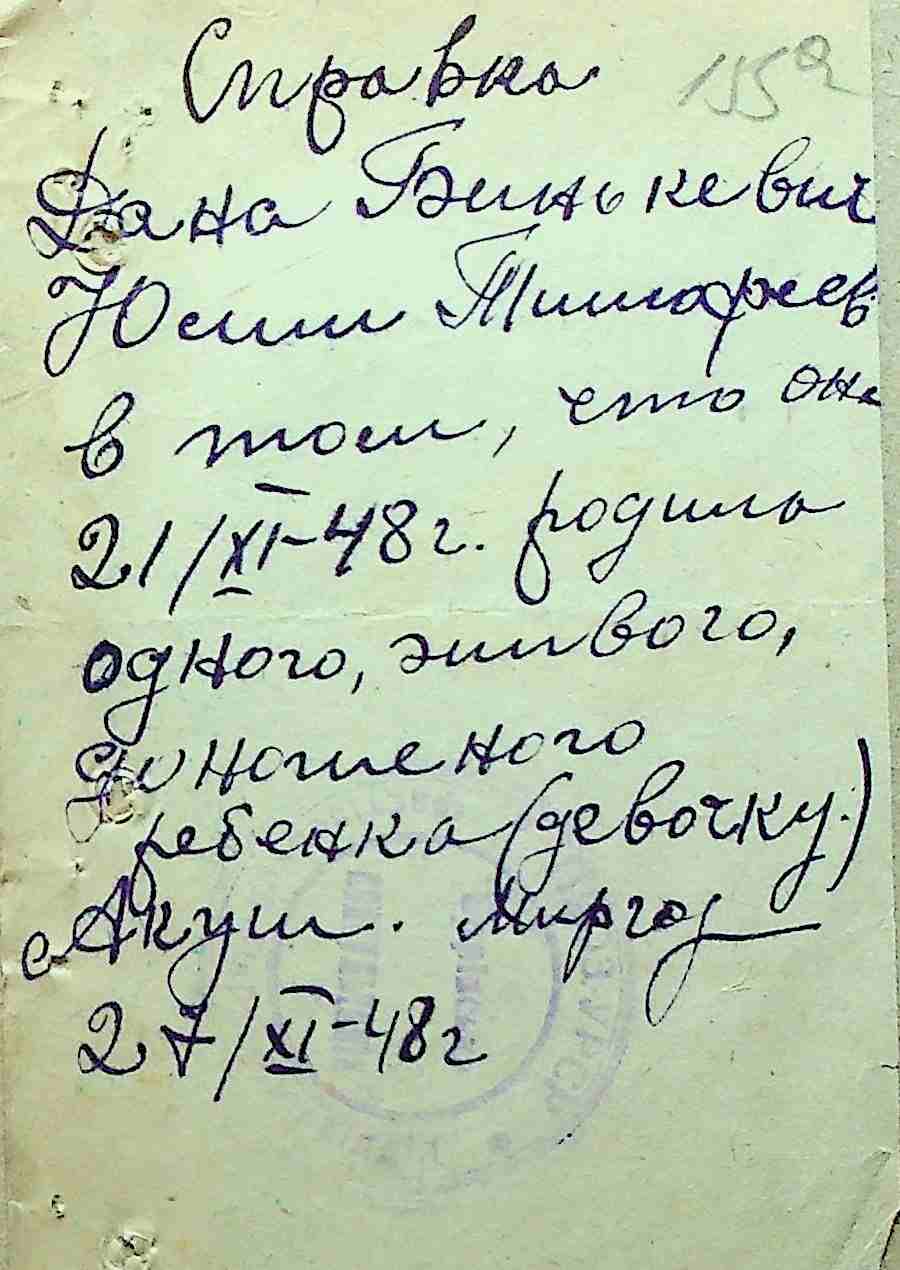 Справка 155а
Дана Бинькевич
Юлии Тимофеев
в том, что она
21/XI-48г. родила
одного, живого,
доношеного
ребенка (девочку.)
Акуш.
27/XI-48г